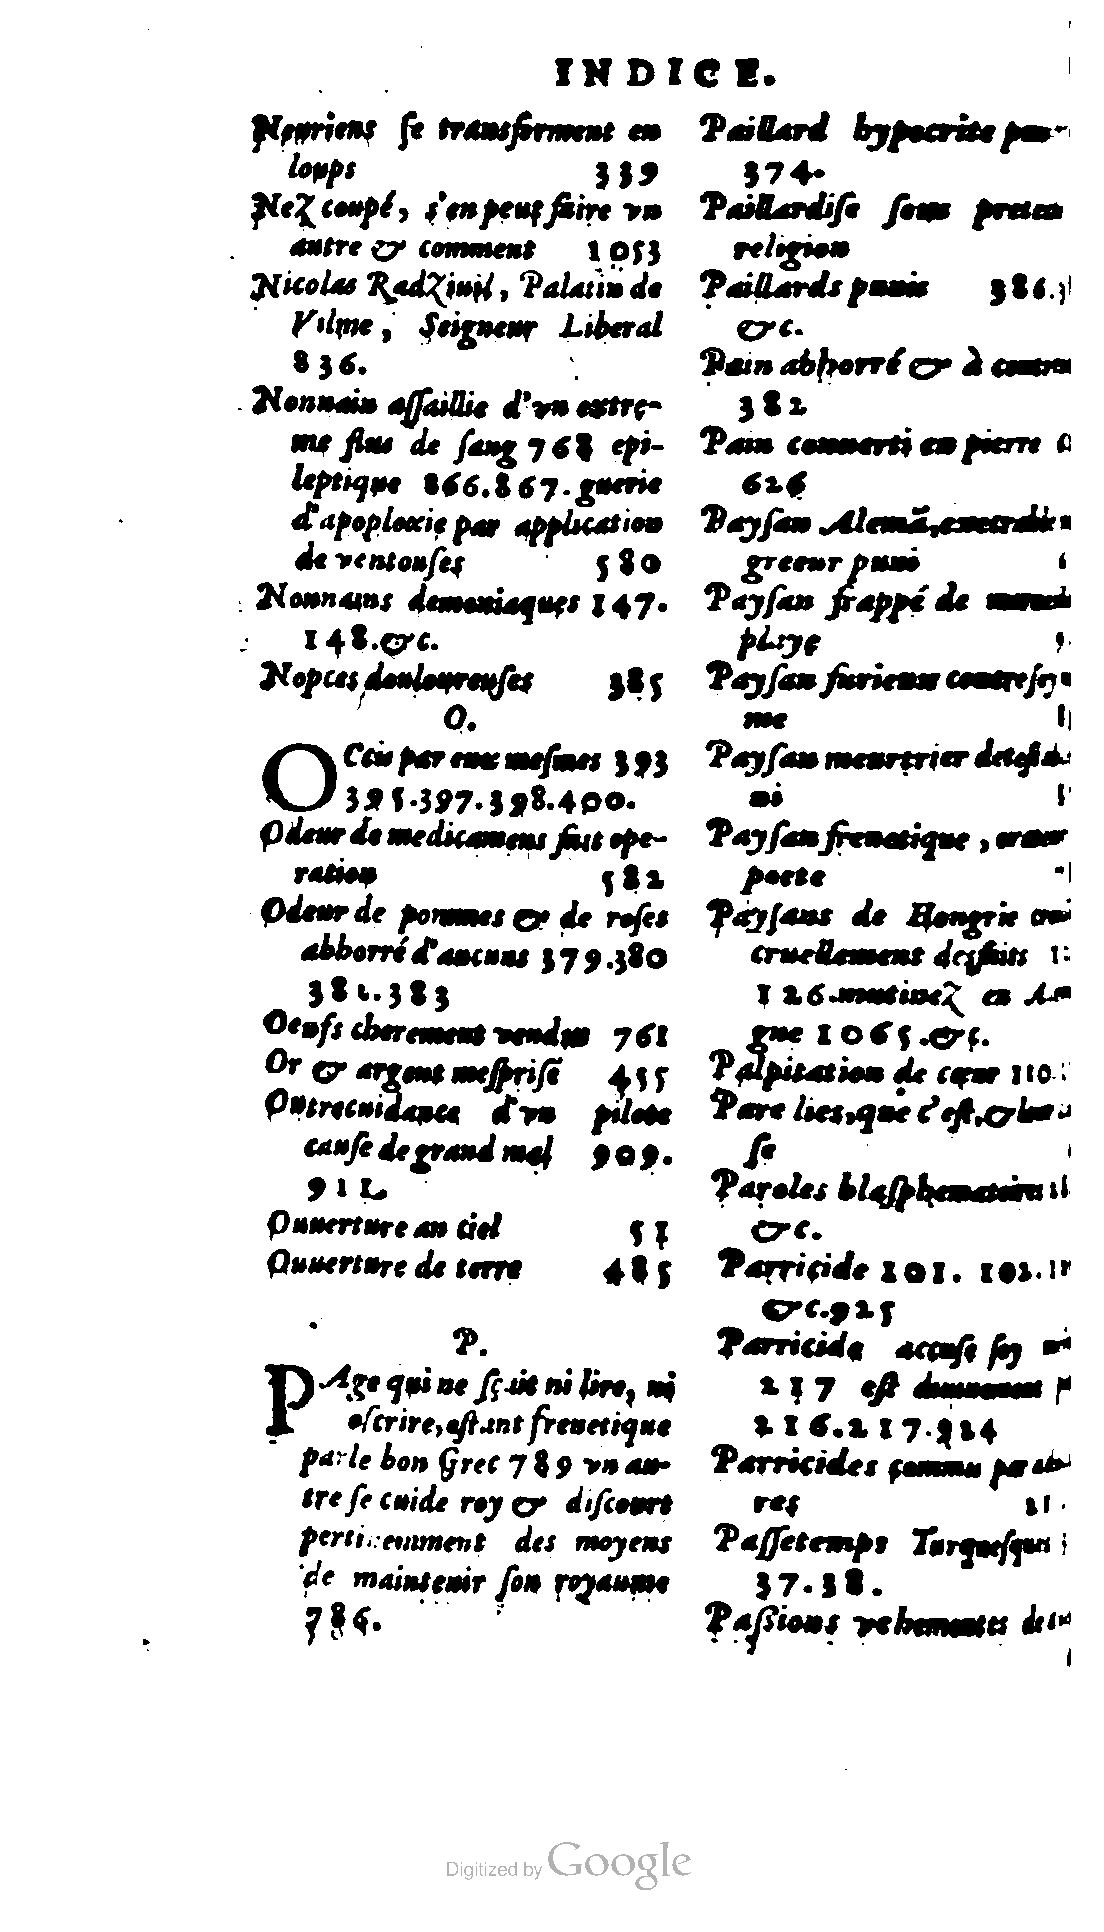 INDICE.
Neuriens ſe transforment en
loups 339
Nez coupé, s'en peut faire vn
autre & comment 1053
Nicolas Radziuil, Palatin de
Vilme, Seigneur Liberal
836.
Nonnain aſſaillie d'vn extre-
me flus de ſang 768 epi-
leptique 866.867. guerie
d'apoplexie par application
de ventouſes 580
Nonnains demoniaques 147.
148.&c.
Nopces douloureuſes 385
O.
OCcis par eux meſmes 393
395.397.398.400.
Odeur de medicamens fait ope-
ration 582
Odeur de pommes & de roſes
abhorré d'aucuns 379.380
381.383
Oeufs cherement vendus 761
Or & argent meſpriſé 455
Outrecuidance d'vn pilote
cauſe de grand mal 909.
911.
Ouuerture au ciel 51
Ouuerture de terre 485
P.
PAge qui ne ſçait ni lire, ni
eſcrire, eſtant frenetique
parle bon Grec 789 vn au-
tre ſe cuide roy & diſcourt
pertinemment des moyens
de maintenir ſon royaume
786.
Paillard hypocrite
374.
Paillardiſe ſous
religion
Paillards punis 386.
&c.
Pain abhorré & à
382
Pain conuerti en pierre
626
Payſan Alemã,
greeur puni
Payſan frappé de
playe
Payſan furieux contre
me
Payſan meurtrier
ni
Payſan frenetique,
poete
Payſans de Hongrie
cruellement desfaits
126. mutinez en
gne 1065.&c.
Palpitation de cœur 110.
Pare lies, que c'eſt, &
ſe
Paroles blaſphematoires
&c.
Parricide 101. 102.
&c.925
Parricide accuſe ſoy
217 eſt
216.217.924
Parricides commis par
res
Paſſetemps Turqueſques
37.38.
Paßions vehementes de
Digitized by Google